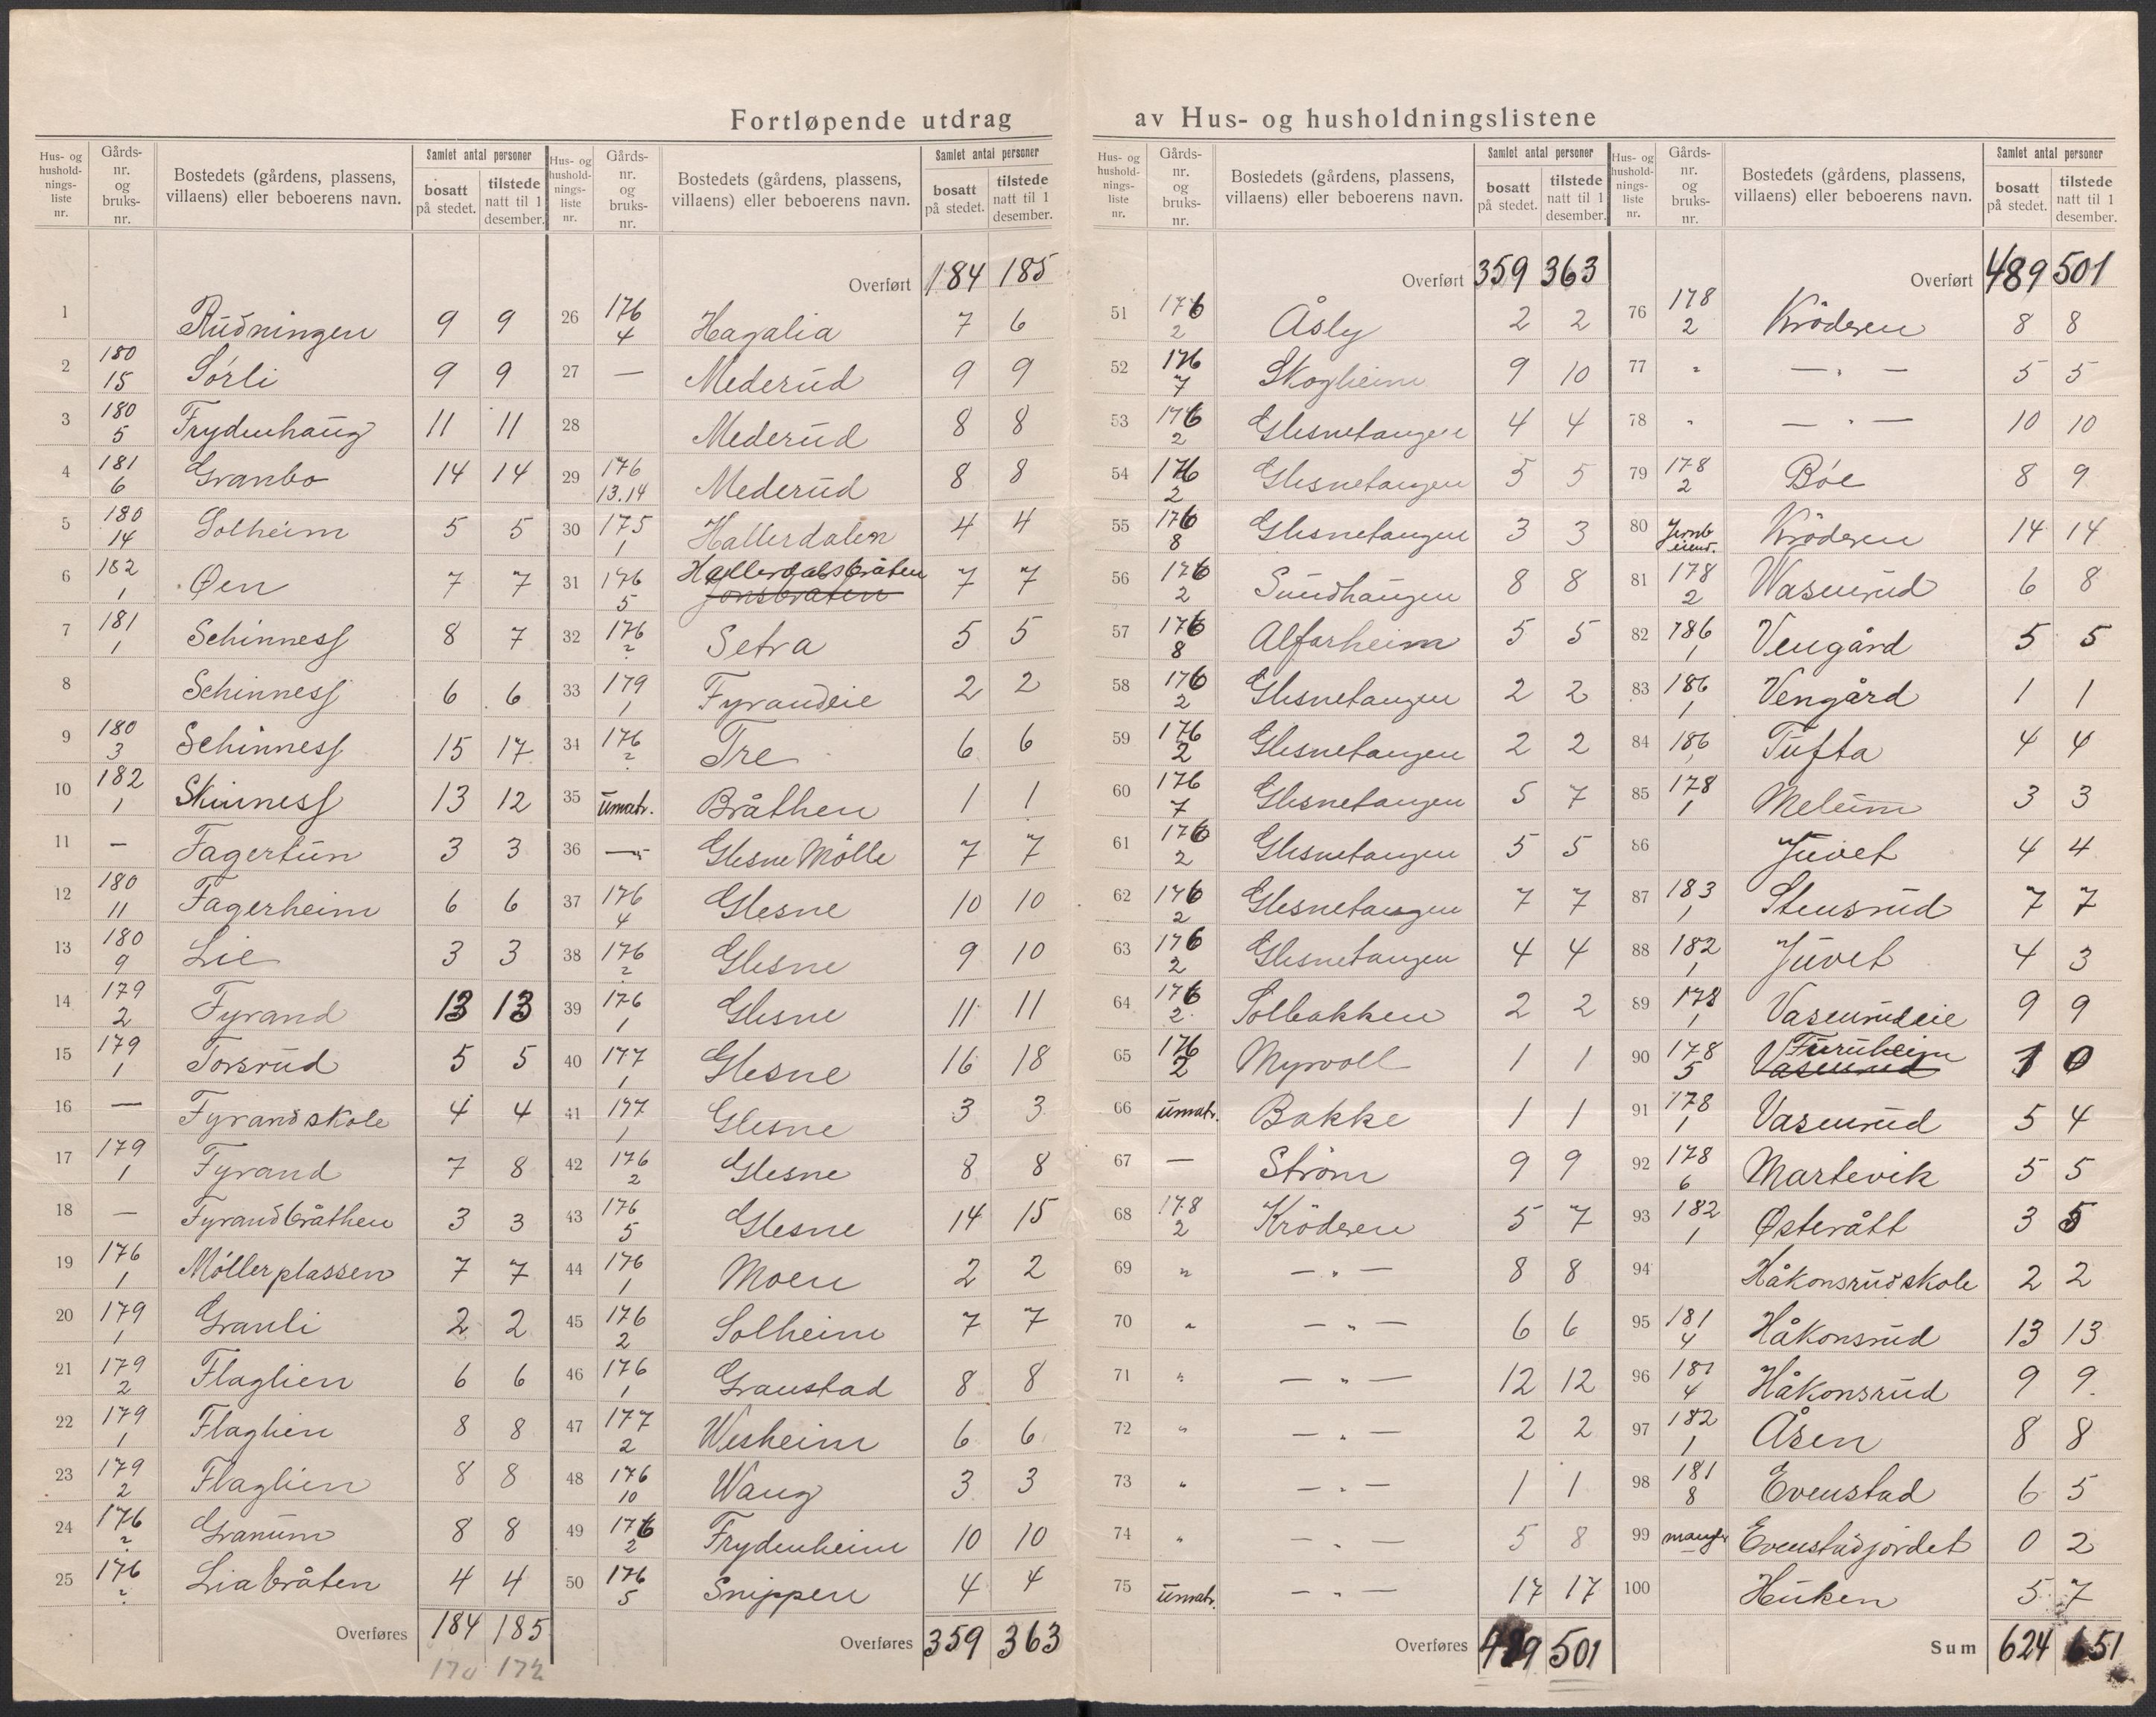 Fortløpende utdrag av Hus- og husholdningslistene
Hus- og hushold-nings-liste nr. | Gårds-nr. og bruks-nr. | Bostedets (gårdens, plassens, villaens) eller beboerens navn. | Samlet antal personer bosatt på stedet. | tilstede natt til 1 desember.
1 Rudningen 9 9
2 180/15 Sörli 9 9
3 180/5 Frydenhaug 11 11
4 181/6 Granbo 14 14
5 180/14 Solheim 5 5
6 182/1 Øen 7 7
7 181/1 Schinness 8 7
8 Schinness 6 6
9 180/3 Schinness 15 17
10 182/1 Skinness 13 12
11 — Fagertun 3 3
12 180/11 Fagerheim 6 6
13 180/9 Lie 3 3
14 179/2 Fyrand 13 13
15 179/1 Torsrud 5 5
16 — Fyrandskole 4 4
17 179/1 Fyrand 7 8
18 — Fyrandbråthen 3 3
19 176/1 Möllerplassen 7 7
20 179/1 Granli 2 2
21 179/2 Flaglien 6 6
22 179/1 Flaglien 8 8
23 179/2 Flaglien 8 8
24 176/2 Granum 8 8
25 176/2 Liabråten 4 4
Overføres 184 185
170 172
Hus- og hushold-nings-liste nr. | Gårds-nr. og bruks-nr. | Bostedets (gårdens, plassens, villaens) eller beboerens navn. | Samlet antal personer bosatt på stedet. | tilstede natt til 1 desember.
Overført 184 185
26 176/4 Hagalia 7 6
27 — Mederud 9 9
28 Mederud 8 8
29 176/13.14 Mederud 8 8
30 175/1 Hallerdalen 4 4
31 176/5 Hallerdalsbråten Jonsbråten 7 7
32 176/2 Setra 5 5
33 179/1 Fyrandeie 2 2
34 176/2 Tre 6 6
35 umatr. Bråthen 1 1
36 —"— Glesne Mölle 7 7
37 176/4 Glesne 10 10
38 176/2 Glesne 9 10
39 176/1 Glesne 11 11
40 177/1 Glesne 16 18
41 177/1 Glesne 3 3
42 176/2 Glesne 8 8
43 176/5 Glesne 14 15
44 176/1 Moen 2 2
45 176/2 Solheim 7 7
46 176/1 Granstad 8 8
47 177/2 Wesheim 6 6
48 176/10 Wang 3 3
49 176/2 Frydenheim 10 10
50 176/5 Snippen 4 4
Overføres 359 363
Hus- og hushold-nings-liste nr. | Gårds-nr. og bruks-nr. | Bostedets (gårdens, plassens, villaens) eller beboerens navn. | Samlet antal personer bosatt på stedet. | tilstede natt til 1 desember.
Overført 359 363
51 176/2 Åsly 2 2
52 176/7 Skogheim 9 10
53 176/2 Glesnetangen 4 4
54 176/2 Glesnetangen 5 5
55 176/8 Glesnetangen 3 3
56 176/2 Sundhaugen 8 8
57 176/8 Alfarheim 5 5
58 176/2 Glesnetangen 2 2
59 176/2 Glesnetangen 2 2
60 176/7 Glesnetangen 5 7
61 176/2 Glesnetangen 5 5
62 176/2 Glesnetangen 7 7
63 176/2 Glesnetangen 4 4
64 176/2 Solbakken 2 2
65 176/2 Myrvoll 1 1
66 umatr. Bakke 1 1
67 — Ström 9 9
68 178/2 Kröderen 5 7
69 " — " — 8 8
70 " — " — 6 6
71 " — " — 12 12
72 " — " — 2 2
73 " — " — 1 1
74 " — " — 5 8
75 umatr. — " — 17 17
Overføres 489 501
Hus- og hushold-nings-liste nr. | Gårds-nr. og bruks-nr. | Bostedets (gårdens, plassens, villaens) eller beboerens navn. | Samlet antal personer bosatt på stedet. | tilstede natt til 1 desember.
Overført 489 501
76 178/2 Kröderen 8 8
77 " — " — 5 5
78 " — " — 10 10
79 178/2 Böe 8 9
80 Jernb eiend. Kröderen 14 14
81 178/2 Wasenrud 6 8
82 186/1 Vengård 5 5
83 186/1 Vengård 1 1
84 186/1 Tufta 4 4
85 178/1 Melum 3 3
86 Juvet 4 4
87 183/1 Stensrud 7 7
88 182/1 Juvet 4 3
89 178/1 Vasenrudeie 9 9
90 178/5 Furuheim Vasenrud 1 0
91 178/1 Vasenrud 5 4
92 178/6 Martevik 5 5
93 182/1 Østerått 3 5
94 Håkonsrudskole 2 2
95 181/4 Håkonsrud 13 13
96 181/4 Håkonsrud 9 9
97 182/1 Åsen 8 8
98 181/8 Evenstad 6 5
99 mangler Evenstadjordet 0 2
100 Huken 5 7
Sum 624 651